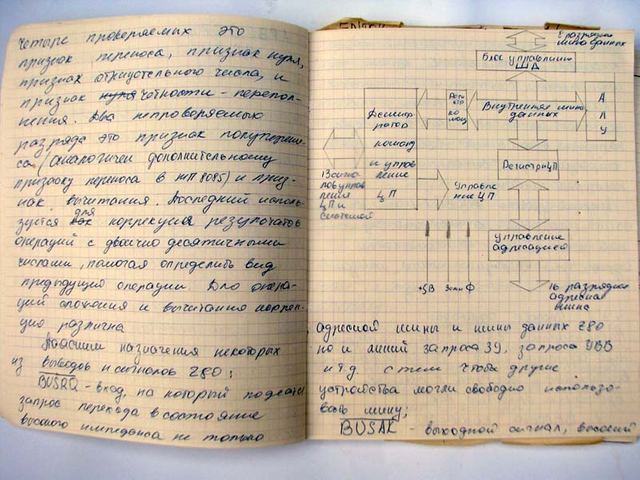 четыре проверяемых это
признак переноса, признак нуля,
признак отрицательного числа, и
признак нуля четности - перепол-
нения. Два непроверяемых
разряда это признак полупереno-
са (аналогичен дополнительному
признаку переноса в МП 8085) и приз-
нак вычитания. Последний исполь-
зуется для коррекции результатов
операций с двоично десятичными
числами, помогая определить вид
предыдущую операции. Для опера-
ций сложения и вычитания коррек-
ция различна
Поясним назначения некоторых
из выводов и сигналов Z80:
BUSRQ - вход, на который подается
запрос перехода в состояние
высокого импеданса не только
8 разрядная
шина данных
Блок управления
ШД
Дешиф-
ратор
команд
и управ-
ление
ЦП
Регистр
команд
Внутренняя шина
данных
А
Л
У
Регистры ЦП
Управле-
ние ЦП
управления
ЦП и
системой
Управление
адресацией
+5В Земля Ф
16 разрядная
адресная
шина
адресной шины и шины данных Z80
но и линий запроса ЗУ, запроса УВВ
и т.д. с тем чтобы другие
устройства могли свободно использо-
вать шину;
BUSAK - выходной сигнал, высокий